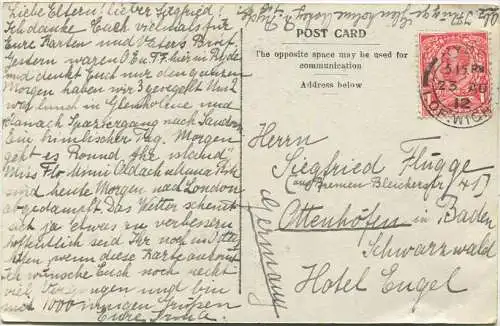 Liebe Eltern! Lieber Siegfried!
Ich danke Euch vielmals für
Eure Karten und Vaters Brief.
Gestern waren O. Eu. F.F. hier in Ryde
und denkt Euch nur den guten
Morgen haben wir 3 gesegelt. Und
war lunch in Glenholme und
danach Spaziergang nach Sandown
Ein himlischer Tag. Morgen
geht es Round the island.
Miss Flo Mimi
sind heute Morgen nach London
abgedampft. Das Wetter scheint
sich ja etwas zu verbessern
hoffentlich seid Ihr noch in Otten
höfen wenn diese Karte ankommt
Ich wünsche Euch noch recht
viel Vergnügen und bin
mit 1000 innigen Grüßen
Eure
POST CARD
The opposite space may be used for
communication
Address below
RYDE
3.15 PM
23 AU
12
I. OF. WIGHT
Herrn
Siegfried Flügge
(aus Bremen Bleicherstr 41)
Ottenhöfen in Baden
Schwarzwald
Hotel Engel
Germany